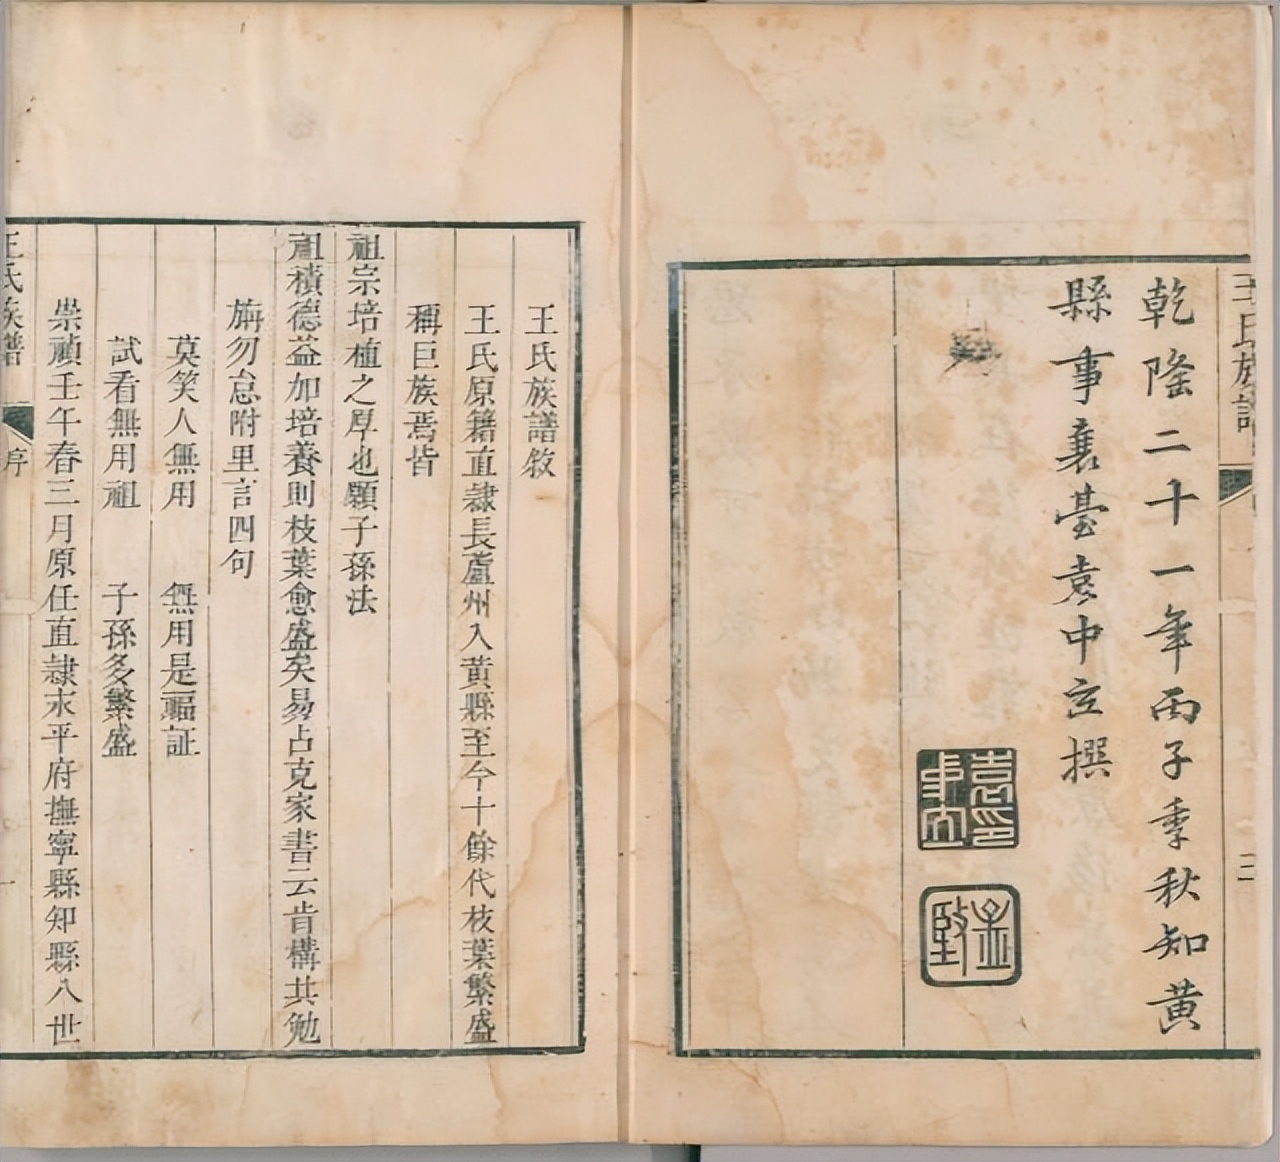 王氏族譜
三
乾隆二十一年丙子季秋知黄
縣事襄臺袁中立撰
王氏族譜敘
王氏原籍直隸長蘆州入黄縣至今十餘代枝葉繁盛
稱巨族焉皆
祖宗培植之厚也願子孫法
祖積德益加培養則枝葉愈盛矣易占克家書云肯構共勉
旃勿怠附里言四句
莫笑人無用　無用是福証
試看無用祖　子孫多繁盛
崇禎壬午春三月原任直隸永平府撫寧縣知縣八世
王氏族譜
序
一